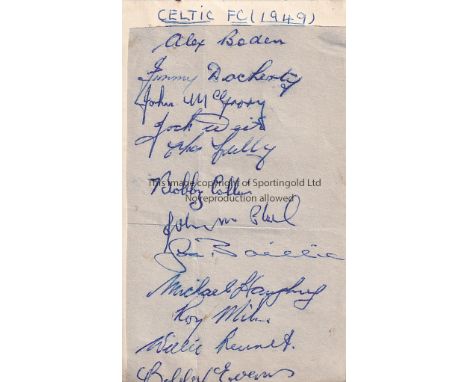 CELTIC FC (1949)
Alex Boden
Jimmy Docherty
John McGrory
Jock Weir
Bobby Collins
This image copyright of Sportingold Ltd
No reproduction allowed
John McPhail
Joe Baillie
Michael Haughney
Roy Milne
Willie
Bobby Evans